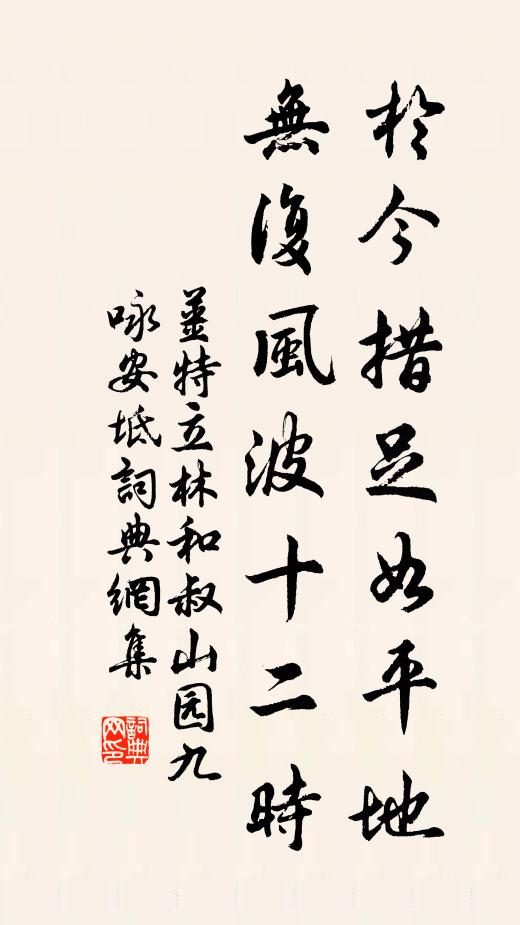 於今措足如平地
無復風波十二時
姜特立林和叔山园九
咏安坻詞典網集
詞典網印